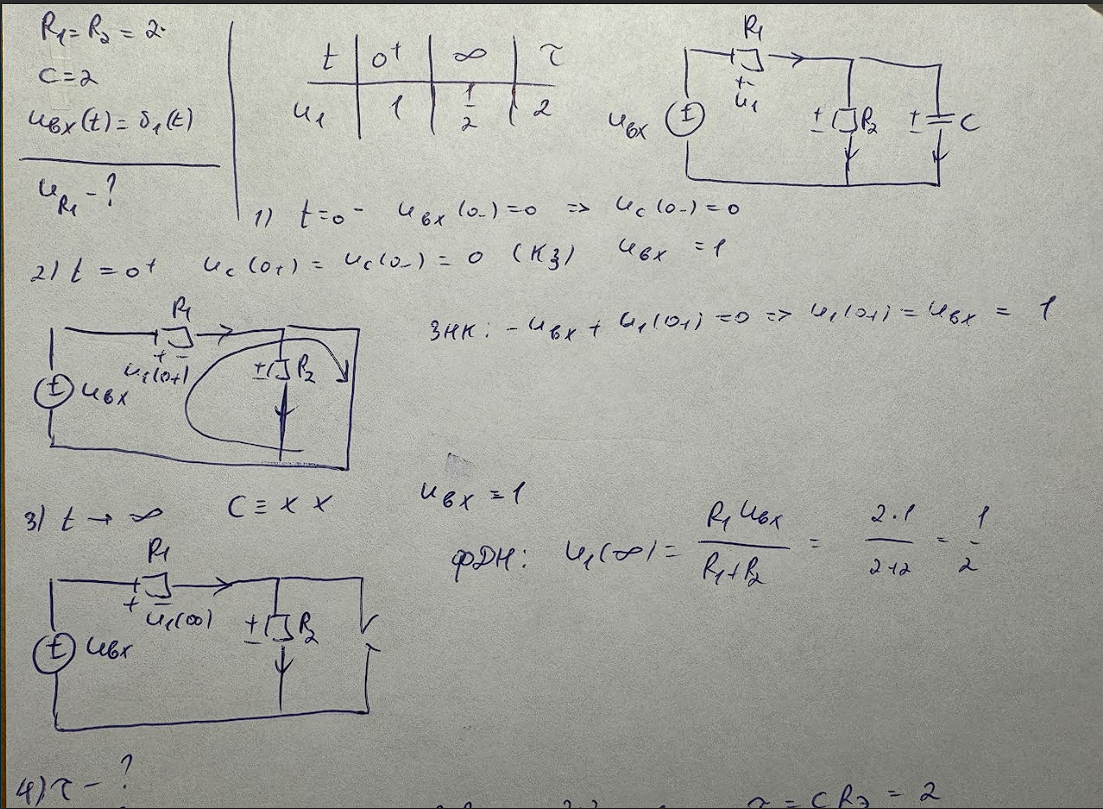 R₁ = R₂ = 2
C = 2
uвх(t) = δ₁(t)
u_R₁ - ?
t | 0+ | ∞ | τ
u₁ | 1 | 1/2 | 2
R₁
+ -
u₁
uвх
+ - R₂
+ - C
1) t=0- uвх(0-)=0 => uc(0-)=0
2) t = 0+ uc(0+) = uc(0-) = 0 (КЗ) uвх = 1
R₁
+ -
u₁(0+)
uвх
+ - R₂
ЗНК: -uвх + u₁(0+) = 0 => u₁(0+) = uвх = 1
3) t → ∞ C ≡ X X uвх = 1
ФДН: u₁(∞) = R₁ uвх / R₁+R₂ = 2·1 / 2+2 = 1/2
R₁
+ -
u₁(∞)
uвх
+ - R₂
4) τ - ?
τ = CRэ = 2